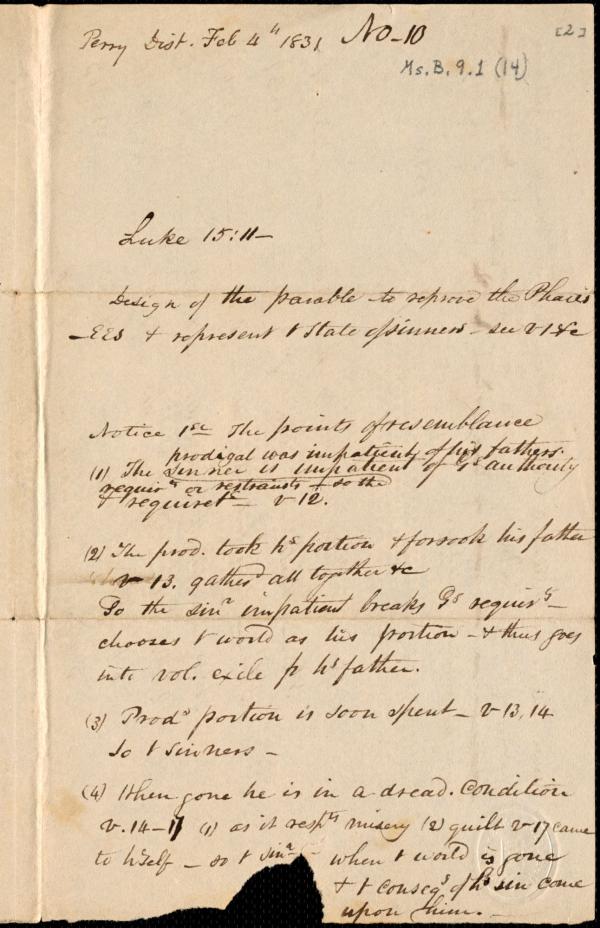 Perry Dist. Feb 4th 1831 No-10
[2]
Ms. B. 9.1 (14)
Luke 15:11-
Design of the parable to reprove the Pharis
-EES & represent t State of sinners - see v 1 &c
Notice 1st The points of resemblance
prodigal was impatient of his fathers
(1) The sinner is impatient of Gs authority
requirts or restraints & so the
& requiret - v 12.
(2) The prod. took hs portion & forsook his father
v 13. gathed all together &c
So the sinr impatient breaks Gs requirts -
chooses t world as his portion - & thus goes
into vol. exile fr hs father.
(3) Prods portion is soon spent - v 13, 14
So t sinners -
(4) When gone he is in a dread. Condition
v. 14-17 (1) as it respts misery (2) guilt v 17 came
to hself - so t sinr - when t world is gone
& t conseqs of hs sin come
upon him. -